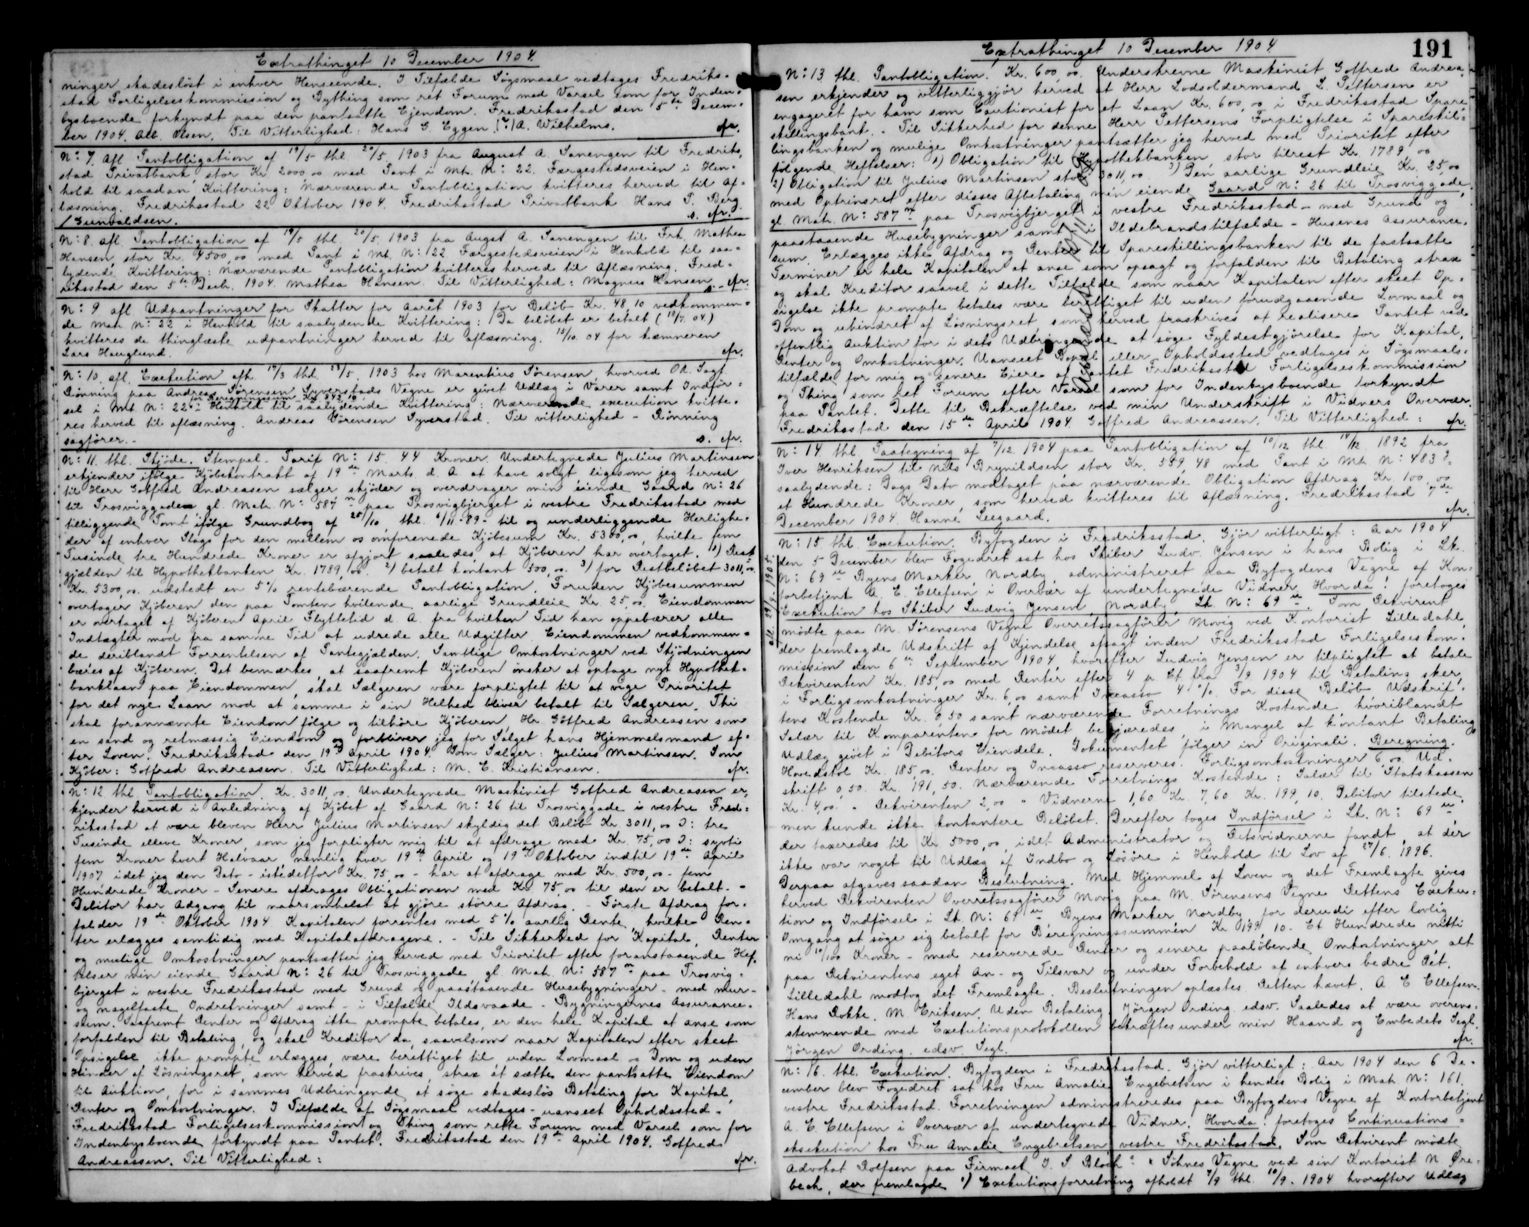 Extrathinget 10 December 1904.
ninger skadesløst i enhver Henseende. I Tilfælde Søgsmaal vedtages Fredrik-
stad Forligelseskommission og Bything som ret Forum med Varsel som for Inden-
bysboende forkyndt paa den pantsatte Eiendom. Fredriksstad den 5te Decem-
ber 1904. Olsen. Til Vitterlighed: Hans G. Eggen. A. Wilhelms.
N: 7. afl. Pantobligation af 19/5 thl. 20/5 1903 fra August A. Sanengen til Fredriks-
stad Privatbank stor Kr. 2000,00 med Pant i Mt. N: 22. Færgestedsveien i Hen-
hold til saadan Kvittering: Nærværende Pantobligation kvitteres herved til Af-
læsning. Fredriksstad 22 Oktober 1904. Fredriksstad Privatbank Hans S. Berg
/Gunvaldsen.
N: 8. afl. Pantobligation af 19/5 thl. 20/5 1903 fra Augst A. Sanengen til Frk. Mathea
Hansen stor Kr. 4500,00 med Pant i Mt. N: 22 Færgestedsveien i Henhold til saa-
lydende Kvittering: Nærværende Pantobligation kvitteres herved til Aflæsning. Fred-
riksstad den 5te Decb. 1904. Mathea Hansen. Til Vitterlighed: Magnus Hansen.
N: 9 afl. Udpantninger for Skatter for Aaret 1903 for Beløb Kr. 48,10 vedkommen-
de mat. N: 22 i Henhold til saalydende Kvittering: Da beløbet er betalt
kvitteres de thinglæste udpantninger herved til aflæsning. 12/10 04 for kæmneren
Lars Hauglund.
N: 10. afl. Execution afh. 17/3 thl. 1903 hos Marenius Sørensen, hvorved O. Sagf.
Rønning paa Andreas Sørensen Syverstads Vegne er givet Udlæg i Varer samt Indfør-
sel i Mt. N: 22 Henhold til saalydende Kvittering: Nærværende execution kvitte-
res herved til aflæsning. Andreas Sørensen Syverstad. Til vitterlighed - Rønning
sagfører.
N: 11. thl. Skjøde. Stempel. Tarif N: 15. 44 Kroner. Undertegnede Julius Martinsen
erkjender ifølge Kjøbekontrakt af 19de Marts d. A. at have solgt ligesom jeg herved
til Herr Gotfred Andreasen sælger skjøder og overdrager min eiende Gaard N: 26
til Trosviggaden gl. Mat. N: 587 paa Trosvigbjerget i vestre Fredriksstad med
tilliggende Tomt ifølge Grundbog af 25/10 thl. 6/11-89 - til og underliggende Herlighe-
der af enhver Slags for den mellem os omforenede Kjøbesum Kr. 5300,00, hvilke fem
Tusinde tre Hundrede Kroner er afgjort saaledes at Kjøberen har overtaget. 1) Rest
gjælden til Hypothekbanken Kr. 1789,00. 2) betalt kontant 500,00. 3) for Restbeløbet 3011,00
Kr. 5300,00. udstedt en 5% rentebærende Pantobligation. Foruden Kjøbesummen
overtager Kjøberen den paa Tomten hvilende aarlige Grundleie Kr. 25,00. Eiendommen
er overtaget af Kjøberen April Flyttetid d. A. fra hvilken Tid han oppebærer alle
Indtægter mod fra samme Tid at udrede alle Udgifter Eiendommen vedkommen-
de deriblandt Forrentelsen af Pantegjælden. Samtlige Omkostninger ved Skjødningen
bæres af Kjøberen. Det bemærkes, at saafremt Kjøberen ønsker at optage nyt Hypothek-
banklaan paa Eiendommen, skal Sælgeren være forpligtet til at vige Prioritet
for det nye Laan mod at samme i sin Helhed bliver betalt til Sælgeren. Thi
skal forannævnte Eiendom følge og tilhøre Kjøberen, Hr. Gotfred Andreasen som
en sand og retmæssig Eiendom og forbliver jeg for Salget hans Hjemmelsmand ef-
ter Loven. Fredriksstad den 19de April 1904. Som Sælger: Julius Martinsen. Som
Kjøber: Gotfred Andreasen. Til Vitterlighed: M. C. Kristiansen.
N: 12 thl. Pantobligation. Kr. 3011,00. Undertegnede Maskinist Gotfred Andreasen er-
kjender herved i Anledning af Kjøbet af Gaard N: 26 til Trosviggade i vestre Fred-
riksstad at være bleven Herr Julius Martinsen skyldig det Beløb Kr. 3011,00 ɔ: tre
Tusinde elleve Kroner, som jeg forpligter mig til at afdrage med Kr. 75,00 ɔ: sytti
fem Kroner hvert Halvaar, nemlig hver 19de April og 19de Oktober indtil 19de April
1907 idet jeg den Dato - istedetfor Kr. 75,00 - har at afdrage med Kr. 500,00 - fem
Hundrede Kroner - Senere afdrages Obligationen med Kr. 75,00 til den er betalt. -
Debitor har Adgang til naarsomhelst at gjøre større Afdrag. - Første Afdrag for-
falder 19de Oktober 1904. Kapitalen forrentes med 5% aarlig Rente, hvilke Ren-
ter erlægges samtidig med Kapitalafdragene. - Til Sikkerhed for Kapital, Renter
og mulige Omkostninger pantsætter jeg herved med Prioritet efter foranstaaende Hef-
telser min eiende Gaard N: 26 til Trosviggade gl. Mat. N: 587 paa Trosvig-
bjerget i vestre Fredriksstad med Grund og paastaaende Husebygninger - med mur-
og nagelfaste Indretninger samt - i Tilfælde Ildsvaade - Bygningernes Assurance-
sum. Saafremt Renter og Afdrag ikke prompte betales, er den hele Kapital at anse som
forfalden til Betaling, og skal Kreditor da, saavelsom naar Kapitalen efter skeet
Opsigelse ikke prompte erlægges, være berettiget til uden Lovmaal og Dom og uden
Hinder af Løsningsret, som herved fraskrives, strax at sætte den pantsatte Eiendom
til Auktion, for i sammes Udbringende at søge skadesløs Betaling for Kapital,
Renter og Omkostninger. I Tilfælde af Søgsmaal vedtages - uanseet Opholdssted -
Fredriksstad Forligelseskommission og Bything som rette Forum med Varsel som for
Indenbysboende forkyndt paa Pantet. Fredriksstad den 19de April 1904. Gotfred
Andreassen. Til Vitterlighed:
Extrathinget 10 December 1904.
191
N: 13 thl. Pantobligation. Kr. 600,00. Underskrevne Maskinist Gotfred Andrea-
sen erkjender og vitterliggjør herved at Herr Lodsoldermand L. Pettersen er
engageret for ham som Cautionist for et Laan Kr. 600,00 i Fredriksstad Spare-
skillingsbank. - Til Sikkerhed for denne Herr Pettersens Forpligtelse i Spareskil-
lingsbanken og mulige Omkostninger pantsætter jeg herved med Prioritet efter
følgende Heftelser: 1) Obligation til Hypothekbanken, stor tilrest Kr. 1789,00
2) Obligation til Julius Martinsen stor 3011,00 3) Den aarlige Grundleie Kr. 25,00
med Optrinsret efter disses Afbetaling min eiende Gaard N: 26 til Trosviggade,
gl. Mat. N: 587 paa Trosvigbjerget i vestre Fredriksstad - med Grund og
paastaaende Husebygninger samt i Ildebrandstilfælde - Husenes Assurance-
sum. Erlægges ikke Afdrag og Renter til Spareskillingsbanken til de fastsatte
Terminer er hele Kapitalen at anse som opsagt og forfalden til Betaling strax
og skal Kreditor saavel i dette Tilfælde som naar Kapitalen efter skeet Op-
sigelse ikke prompte betales være berettiget til uden forudgaaende Lovmaal og
Dom og uhindret af Løsningsret som herved fraskrives at realisere Pantet ved
offentlig Auktion for i dets Udbringende at søge Fyldestgjørelse for Kapital,
Renter og Omkostninger. Uanseet Bopæl eller Opholdssted vedtages i Søgsmaals-
tilfælde for mig og senere Eiere af Pantet Fredriksstad Forligelseskommission
og Thing som ret Forum efter Varsel som for Indenbysboende forkyndt
paa Pantet. Dette til Bekræftelse ved min Underskrift i Vidners Overvær.
Fredriksstad den 15de April 1904. Gotfred Andreassen. Til Vitterlighed:
N: 14 thl. Paategning af 7/12 1904 paa Pantobligation af 10/12 thl. 1892 fra
Iver Henriksen til Nils Brynildsen stor Kr. 559,48 med Pant i Mt. N: 483
saalydende: Dags Dato modtaget paa nærværende Obligation Afdrag Kr. 100,00
et Hundrede Kroner, som herved kvitteres til Aflæsning. Fredriksstad 7de
December 1904. Hanne Seegaard.
N: 15 thl. Execution. Byfogden i Fredriksstad. Gjør vitterligt: Aar 1904
den 5 December blev Fogedret sat hos Skiber Ludv. Jensen i hans Bolig i Lt.
N: 69 Byens Marker, Nordby, administreret paa Byfogdens Vegne af Kon-
torbetjent A. E. Ellefsen i Overvær af undertegnede Vidner. Hvorda: foretoges
Execution hos Skiber Ludvig Jensen, Nordby, Lt. N: 69. Som Rekvirent
mødte paa M. Sørensens Vegne Overretssagfører Movig ved Kontorist Lilledahl,
der fremlagde Udskrift af Kjendelse afsagt inden Fredriksstad Forligelseskom-
mission den 6te September 1904, hvorefter Ludvig Jensen er tilpligtet at betale
Rekvirenten Kr. 185,00 med Renter efter 4 p Ct fra 3/9 1904 til Betaling sker,
i Forligsomkostninger Kr. 6,00 samt Incasso 4%. For disse Beløb Udskrif-
tens Kostende Kr. 0,50 samt nærværende Forretnings Kostende hvoriblandt
Salær til Komparenten for Mødet begjæredes, i Mangel af kontant Betaling
Udlæg givet i Debitors Eiendele. Dokumentet følger in Originali. Beregning.
Hovedstol Kr. 185,00. Renter og Incasso reserveres. Forligsomkostninger 6,00. Ud-
skrift 0,50. Kr. 191,50. Nærværende Forretnings Kostende: Salær til Statskassen
Kr. 4,00. " Rekvirenten 2,00 " Vidnerne 1,60 Kr. 7,60. Kr. 199,10. Debitor tilstede,
men kunde ikke kontantere Beløbet. Derefter toges Indførsel i Lt. N: 69,
der taxeredes til Kr. 5000,00, idet Administrator og Retsvidnerne fandt, at der
ikke var noget til Udlæg af Indbo og Løsøre i Henhold til Lov af 27/6. 1896.
Derpaa afgaves saadan Beslutning. Med Hjemmel af Loven og det Fremlagte gives
herved Rekvirenten Overretssagfører Movig paa M. Sørensens Vegne Rettens Exeku-
tion og Indførsel i Lt. N: 69 Byens Marker, Nordby, for derudi efter lovlig
Omgang at søge sig betalt for Beregningssummen Kr. 199,10. Et Hundrede nitti
ni 10/100 Kroner - med reserverede Renter og senere paaløbende Omkostninger alt
paa Rekvirentens eget An- og Tilsvar og under Forbehold af enhvers bedre Ret.
Lilledahl modtog det Fremlagte. Beslutningen oplæstes. Retten hævet. A. E. Ellefsen.
Hans Bakke. M. Eriksen. Uden Betaling Jørgen Ording, edsv. Saaledes at være overens-
stemmende med Exekutionsprotokollen bekræftes under min Haand og Embedets Segl.
Jørgen Ording, edsv. Segl.
N: 16. thl. Exekution. Byfogden i Fredriksstad. Gjør vitterligt: Aar 1904 den 6 De-
cember blev Fogedret sat hos Fru Amalie Engebretsen i hendes Bolig i Mat. N: 161.
vestre Fredriksstad. Forretningen administreredes paa Byfogdens Vegne af Kontorbetjent
A. E. Ellefsen i Overvær af undertegnede Vidner. Hvorda: foretoges Continuations-
eksekution hos Fru Amalie Engebretsen vestre Fredriksstad. Som Rekvirent mødte
Advokat Rolfsen paa Firmaet J. S. Block & Søhnes Vegne ved sin Kontorist N. Øre-
bech, der fremlagde 1) Exekutionsforretning afholdt 7/9 thl. 10/9. 1904 hvorefter Udlæg